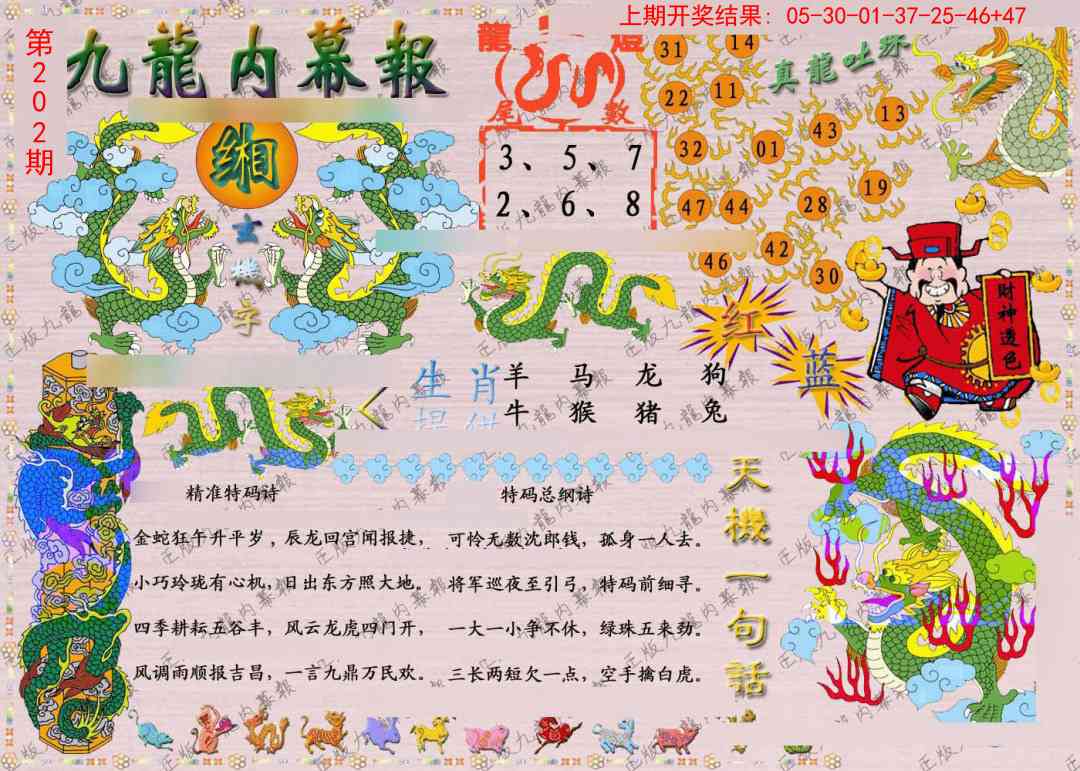 上期开奖结果：05-30-01-37-25-46+47
第202期
九龍内幕報
缃
玄機字
龍 燈
尾 數
3、5、7
2、6、8
真龍吐珠
31 14
22 11
43 13
32 01
19
47 44 28
42
46 30
红
蓝
财神透色
生肖提供
羊 马 龙 狗
牛 猴 猪 兔
精准特码诗
金蛇狂午升平岁，辰龙回宫闻报捷，
小巧玲珑有心机，日出东方照大地。
四季耕耘五谷丰，风云龙虎四门开，
风调雨顺报吉昌，一言九鼎万民欢。
特码总纲诗
可怜无数沈郎钱，孤身一人去。
将军巡夜至引弓，特码前细寻。
一大一小争不休，绿珠五来劲。
三长两短欠一点，空手擒白虎。
天機一句話
正版九龍内幕報